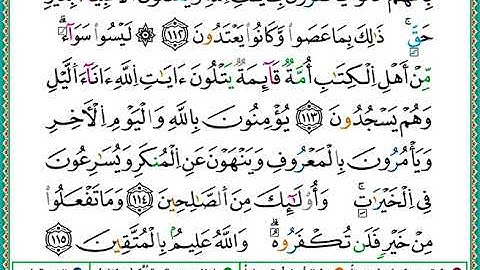 حَقٍّۚ ذَٰلِكَ بِمَا عَصَوا۟ وَّكَانُوا۟ يَعْتَدُونَ ﴿١١٢﴾ ۞ لَيْسُوا۟ سَوَآءًۗ
مِّنْ أَهْلِ ٱلْكِتَٰبِ أُمَّةٌ قَآئِمَةٌ يَتْلُونَ ءَايَٰتِ ٱللَّهِ ءَانَآءَ ٱلَّيْلِ
وَهُمْ يَسْجُدُونَ ﴿١١٣﴾ يُؤْمِنُونَ بِٱللَّهِ وَٱلْيَوْمِ ٱلْأَخِرِ
وَيَأْمُرُونَ بِٱلْمَعْرُوفِ وَيَنْهَوْنَ عَنِ ٱلْمُنكَرِ وَيُسَٰرِعُونَ
فِى ٱلْخَيْرَٰتِۖ وَأُو۟لَٰٓئِكَ مِنَ ٱلصَّٰلِحِينَ ﴿١١٤﴾ وَمَا تَفْعَلُوا۟
مِنْ خَيْرٍ فَلَن تُكْفَرُوهُۗ وَٱللَّهُ عَلِيمٌۢ بِٱلْمُتَّقِينَ ﴿١١٥﴾